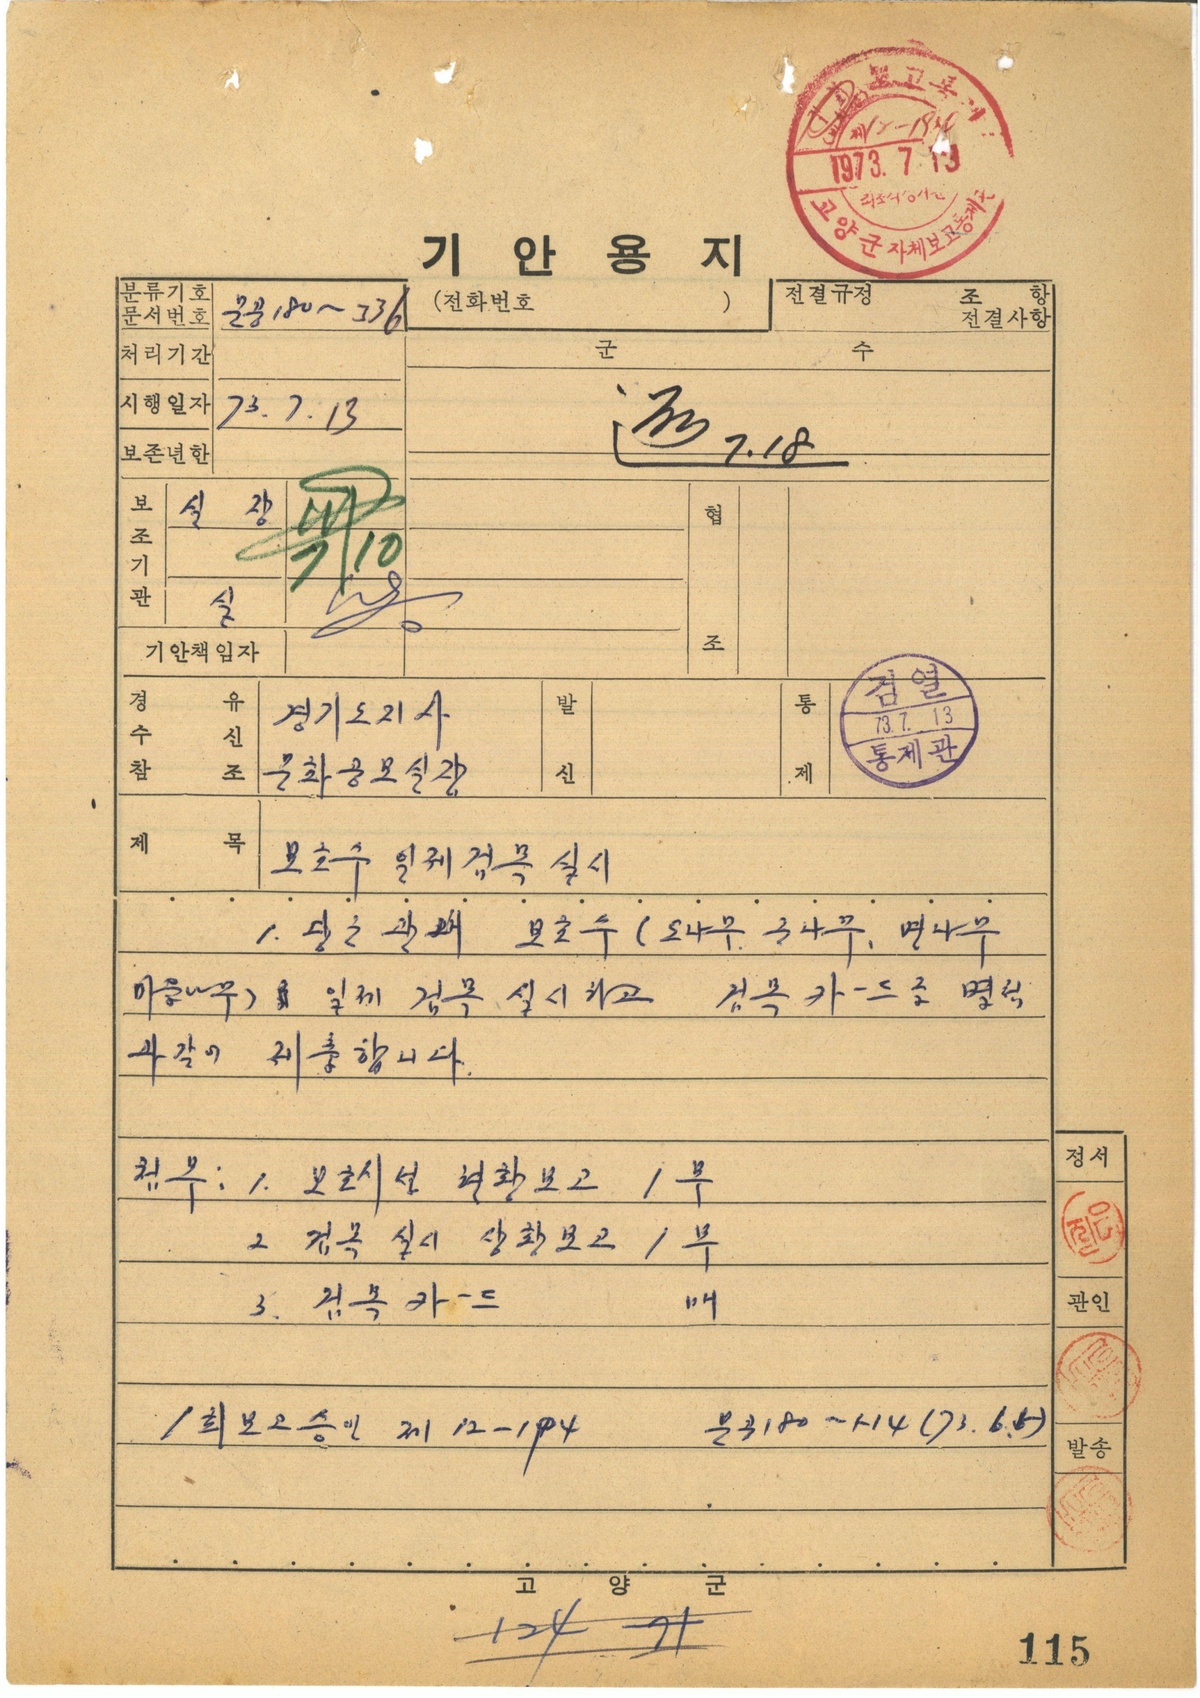 보고
1973. 7 13
고양군 자체보고통제
기 안 용 지
분류기호
문서번호
문공180~
(전화번호 )
전결규정 조 항
전결사항
처리기간
군 수
시행일자 73. 7. 13
7.18
보존년한
보조기관
실 장
7/10
실
협조
기안책임자
경유
수신 경기도지사
참조 문화공보실장
발신
통제
검열
73. 7. 13
통제관
제 목 보호수 일제검목 실시
1. 당군 관내 보호수 (도나무. 군나무. 면나무
마을나무) 일제 검목 실시하고 검목 카-드를 별첨
과같이 제출합니다.
첨부: 1. 보호시설 현황보고 1부
2 검목 실시 상황보고 1부
3. 검목 카-드 매
1회보고승인 제 12-194 문공180~ (73. 6. )
정서
관인
발송
고 양 군
115